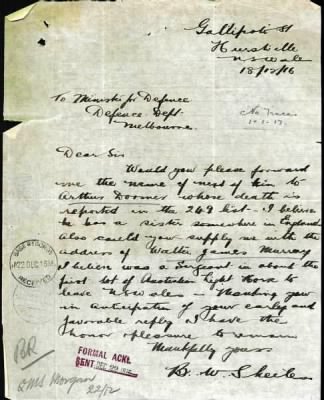 Gallipoli St
Hurstville
NS Wale
18/12/16
To Minister for Defence
Defence Dept
Melbourne
No Trace
Dear Sir
Would you please forward
me the name of next of kin to
Arthur Doomer whose death is
reported in the 249 list - I believe
he has a sister somewhere in England
Also could you supply me with the
address of Walter James Murray
I believe was a Sergeant in about the
first lot of Australian Light Horse to
leave NS Wales - Thanking you
in anticipation of your early and
favorable reply I have the
honor & pleasure to remain
Yours
22 DEC 1916
RECEIVED
FORMAL ACKT.
SENT DEC 22 1916
22/12